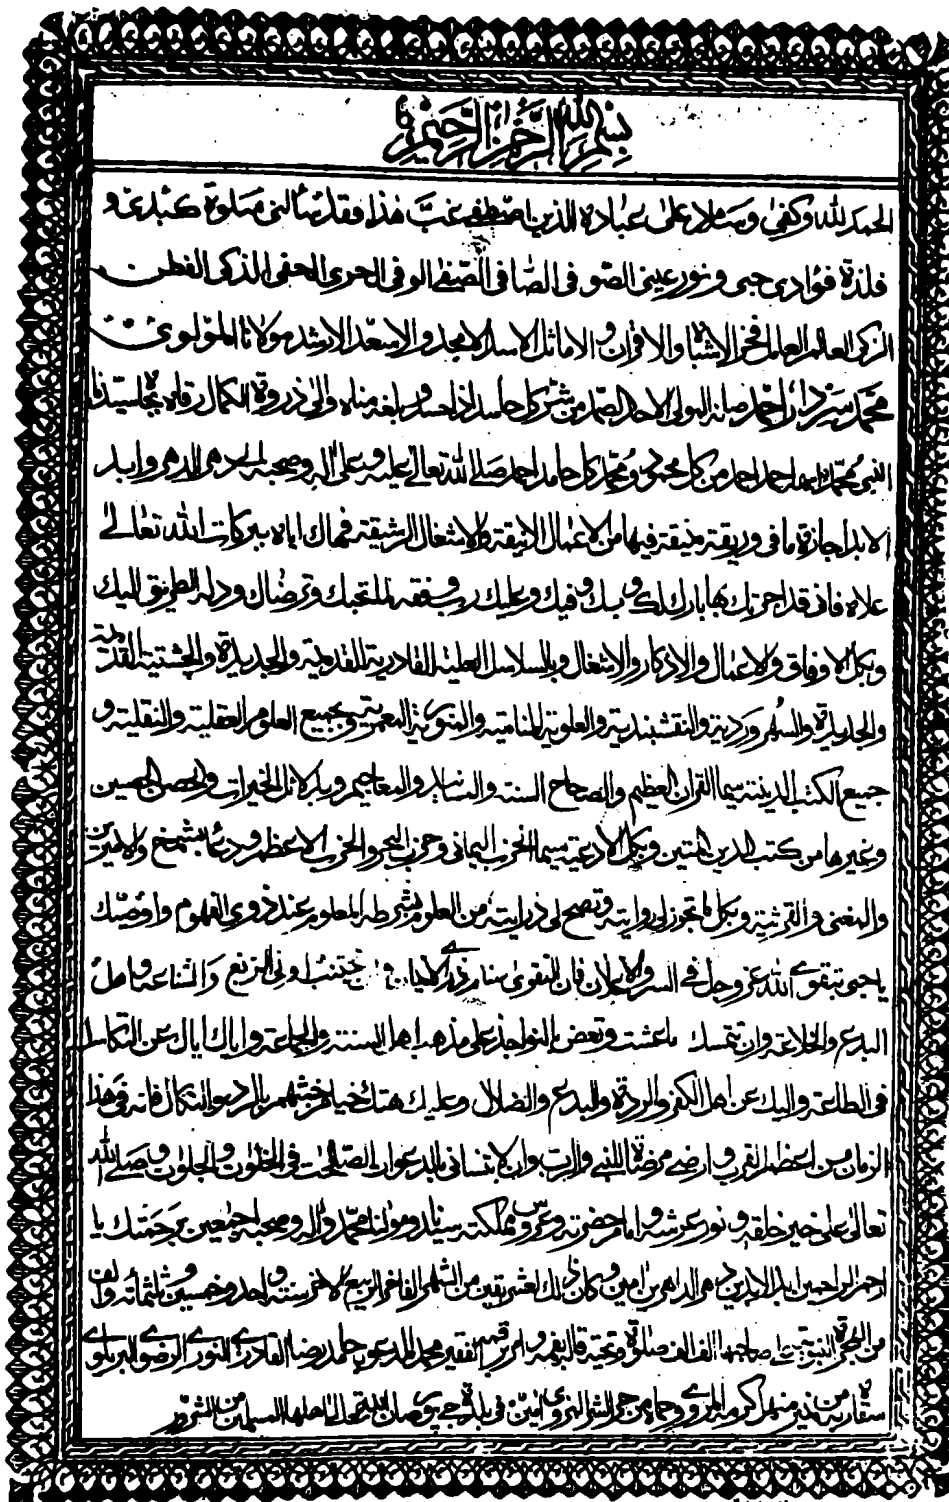 بسم الله الرحمن الرحيم
الحمد لله وكفى وسلام على عباده الذين اصطفى غب هذا فقد سألنى سلوة كبدى و
فلذة فؤادى حبى ونور عينى الصوفى الصافى الصفى الوفى الحرى الحفى الذكى الفطن
الزكى العالم العامل فخر الاشباه والاقران و الاماثل الاسد الامجد والاسعد الارشد مولانا المولوى
محمد سردار احمد صانه المولى الاحد الصمد من شر كل حاسد اذا حسد وبلغه مناه والى ذروة الكمال رقاه بجاه سيدنا
النبى محمد احمد من كل محمود ومحمد كل حامد احمد صلى الله تعالى عليه وعلى اله وصحبه الى دهر الدهر وابد
الابد اجازة ما فى وريقة منيقة فيها من الاعمال الانيقة والاشغال الرشيقة فهاك اياه ببركات الله تعالى
علاه فانى قد اجزتك بها بارك لك وبك وفيك وعليك ربى وفقه لما تحبك وترضاك ودله الطريق اليك
وبكل الاوفاق والاعمال والاذكار والاشغال وبالسلاسل العلية القادرية القديمة والجديدة والچشتية القديمة
والجديدة والسهروردية والنقشبندية والعلوية المنامية والمنورية المعمرية وبجميع العلوم العقلية والنقلية و
جميع الكتب الدينية سيما القران العظيم والصحاح الستة والمسانيد والمعاجيم وبدلائل الخيرات والحصن الحصين
وغيرها من كتب الدين المتين وبكل الادعية سيما الحرز اليمانى وحزب البحر والحزب الاعظم ودعاء بشمخ والاميرين
والمغنى والقرشية وبكل ما تجوز لى روايته وتصح لى درايته من العلوم بشرطه المعلوم عند ذوى الفهوم واوصيك
يا حبى بتقوى الله عز وجل فى السر والاعلان فان التقوى سنام ذرى وتجتنب اولى الزيغ والشناعة واهل
البدع والخلاعة وان تتمسك ما عشت وتعض بالنواجذ على مذهب اهل السنة والجماعة واياك اياك عن التكاسل
فى الطاعة واليك عن اهل الكفر والردة والبدع والضلال وعليك هتك خبثهم بالرد والنكال فانه فى هذا
الزمان من اعظم القرب وارضى مرضاة للنبى والرب وان لا تنسانى بالدعوات الصالحات فى الخلوات والجلوات وصلى الله
تعالى على خير خلقه ونور عرشه وامام حضرته وعروس مملكته سيدنا ومولنا محمد واله وصحبه اجمعين برحمتك يا
ارحم الراحمين ابد الابدين دهر الداهرين امين وكان ذلك لعشر بقين من الشهر الفاخر الربيع الاخر سنة احد وخمسين وثلثمائة والف
من الهجرة النبوية على صاحبها الف الف صلاة وتحية قاله بفمه وامر برقمه الفقير محمد المدعو بحامد رضا القادرى النورى الرضوى البريلوى
سقاه ربه من نمير منهل كرمه المروى وحماه من حر الشر امين فى بلدة جى پور صان الله تعالى اهلها المسلمين من الشرور